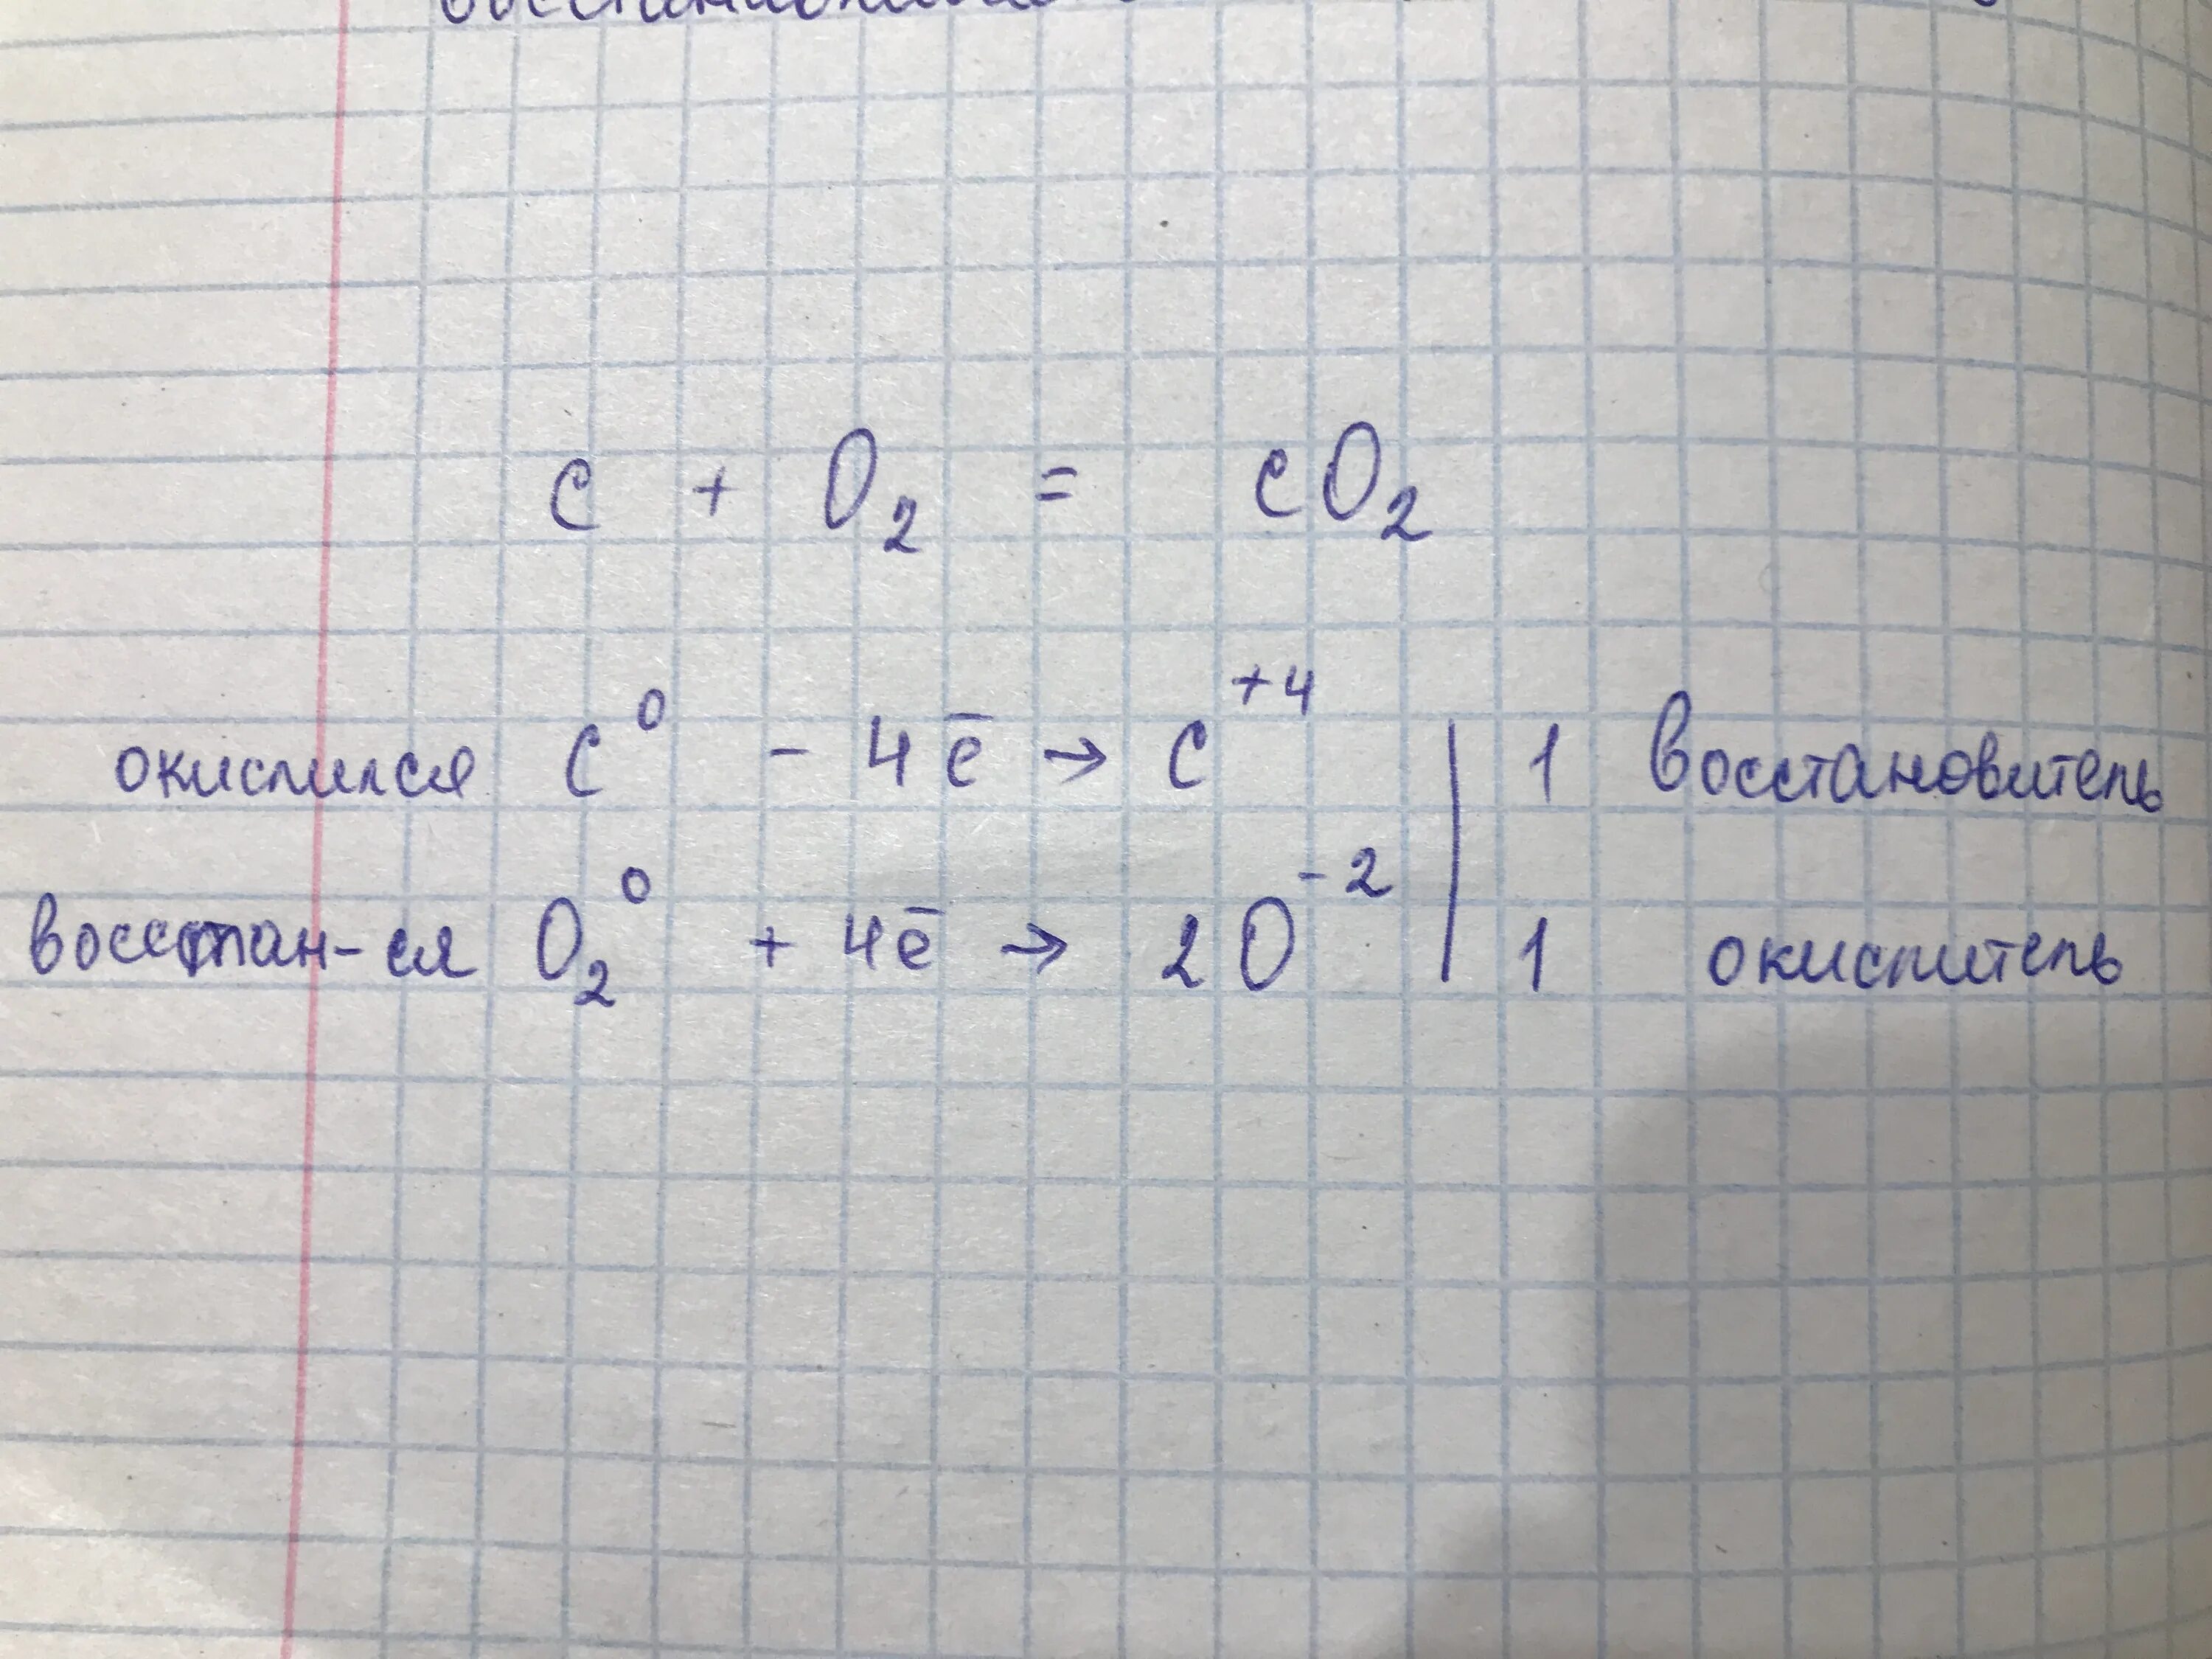 C + O₂ = CO₂
окислился C⁰ - 4ē → C⁺⁴ | 1 восстановитель
восстан-ся O₂⁰ + 4ē → 2O⁻² | 1 окислитель